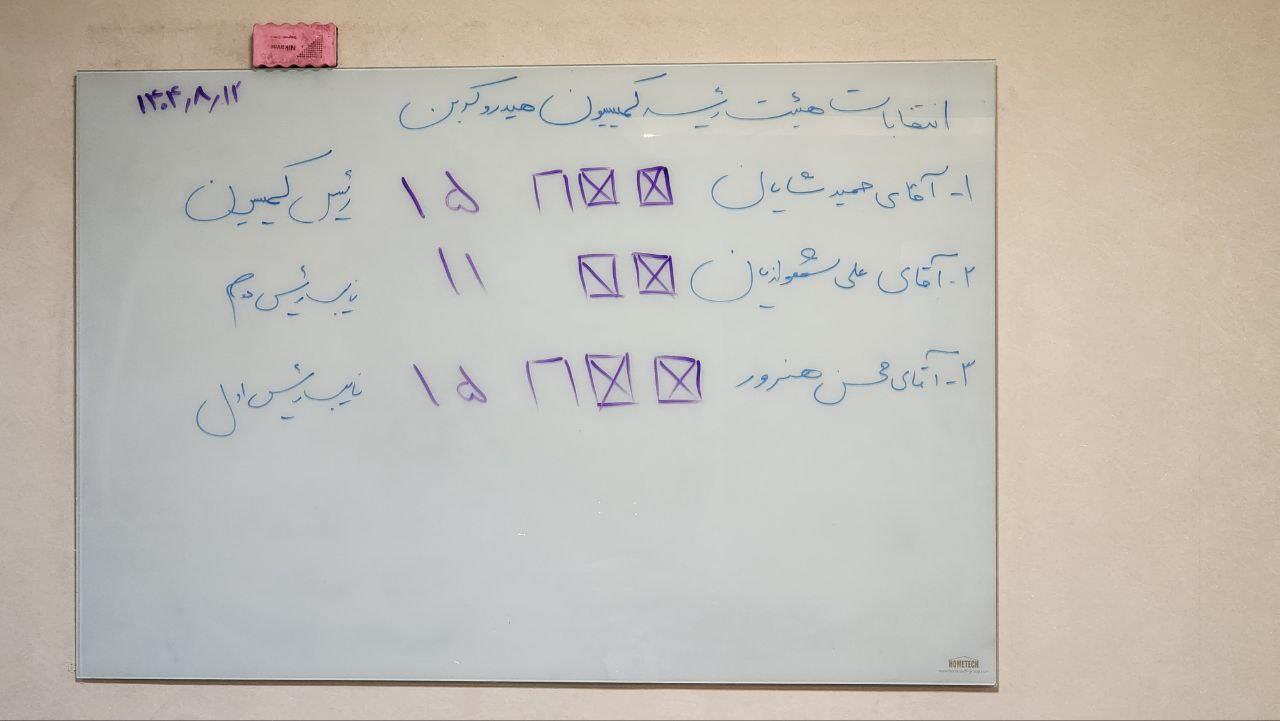 ۱۴۰۴,۸,۱۲
انتخابات هیئت رئیسه کمیسیون هیدروکربن
۱- آقای حمید شایان ۱۵ رئیس کمیسیون
۲- آقای علی ۱۱ نایب رئیس دوم
۳- آقای محسن هنرور ۱۵ نایب رئیس اول
HOMETECH